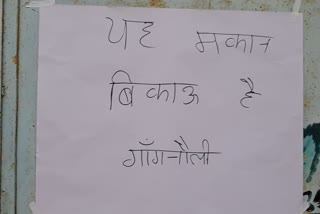 यह मकान
बिकाऊ है
गाँगनौली